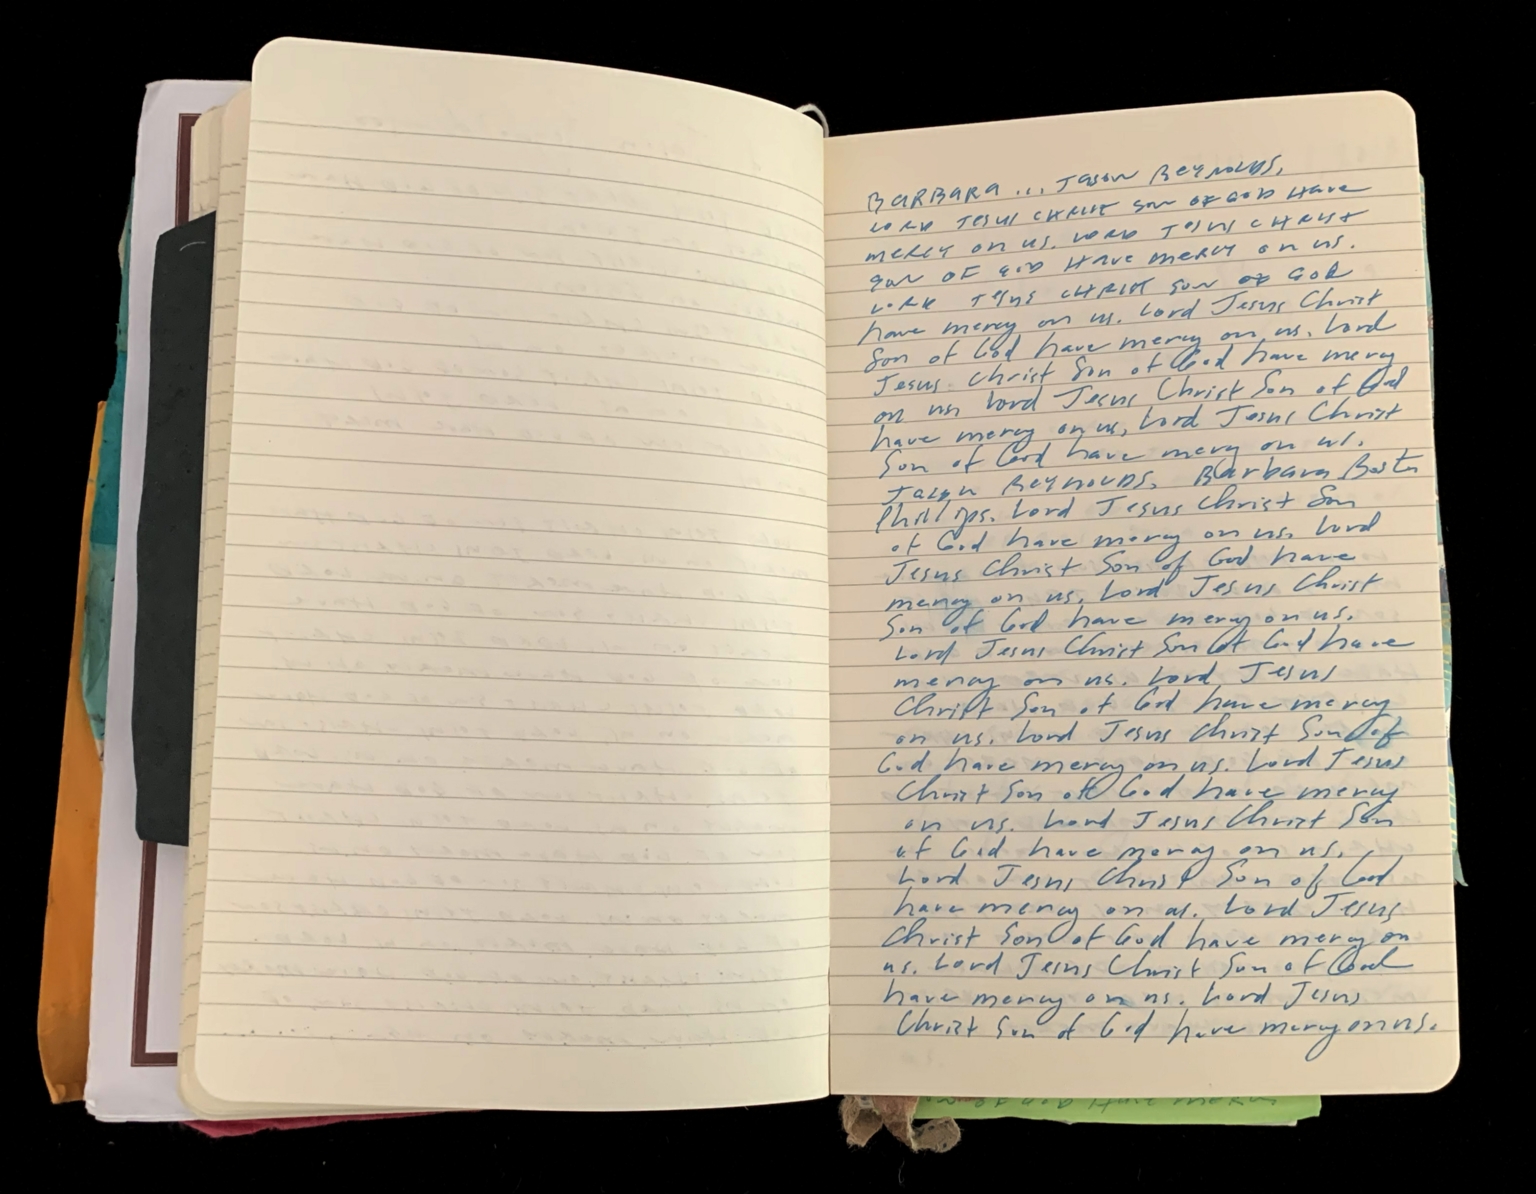 BARBARA ... Jason Reynolds,
LORD JESUS CHRIST SON OF GOD Have
mercy on us. LORD JESUS CHRIST
SON OF GOD Have mercy on us.
LORD JESUS CHRIST SON OF GOD
have mercy on us. Lord Jesus Christ
Son of God have mercy on us. Lord
Jesus Christ Son of God have mercy
on us. Lord Jesus Christ Son of God
have mercy on us, Lord Jesus Christ
Son of God have mercy on us.
Jason Reynolds. Barbara
Phillips. Lord Jesus Christ Son
of God have mercy on us. Lord
Jesus Christ Son of God have
mercy on us. Lord Jesus Christ
Son of God have mercy on us.
Lord Jesus Christ Son of God have
mercy on us. Lord Jesus
Christ Son of God have mercy
on us. Lord Jesus Christ Son of
God have mercy on us. Lord Jesus
Christ Son of God have mercy
on us. Lord Jesus Christ Son
of God have mercy on us.
Lord Jesus Christ Son of God
have mercy on us. Lord Jesus
Christ Son of God have mercy on
us. Lord Jesus Christ Son of God
have mercy on us. Lord Jesus
Christ Son of God have mercy on us.
OF GOD Have mercy